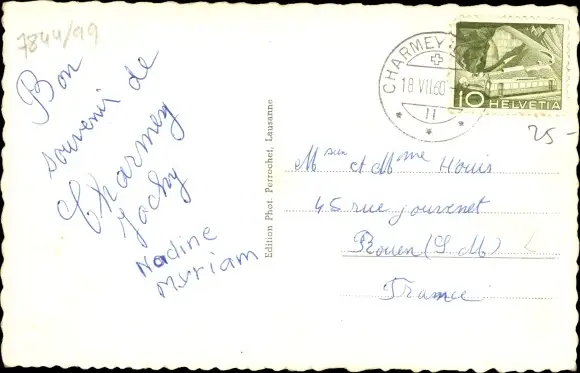 7844/99
Bon
souvenir de
Charmey
Jachy
Nadine
Myriam
Edition Phot. Perrochet, Lausanne
CHARMEY
18.VII.60
11
10 HELVETIA
25-
Msieur et Mme Houis
45 rue Jouvenet
Rouen (S.M)
France